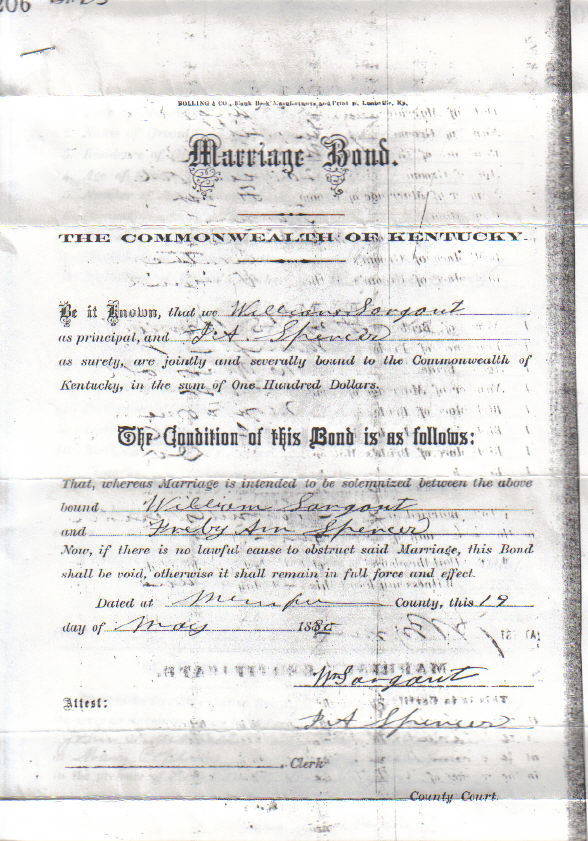 206
BOLLING & CO., Blank Book Manufacturers and Printers, Louisville, Ky.
Marriage Bond.
THE COMMONWEALTH OF KENTUCKY.
Be it Known, that we William Sargant
as principal, and J. A. Spencer
as surety, are jointly and severally bound to the Commonwealth of
Kentucky, in the sum of One Hundred Dollars.
The Condition of this Bond is as follows:
That, whereas Marriage is intended to be solemnized between the above
bound William Sargant
and Ann Spencer
Now, if there is no lawful cause to obstruct said Marriage, this Bond
shall be void, otherwise it shall remain in full force and effect.
Dated at County, this 19
day of May 1880
Wm Sargant
Attest: J A Spencer
Clerk
County Court.